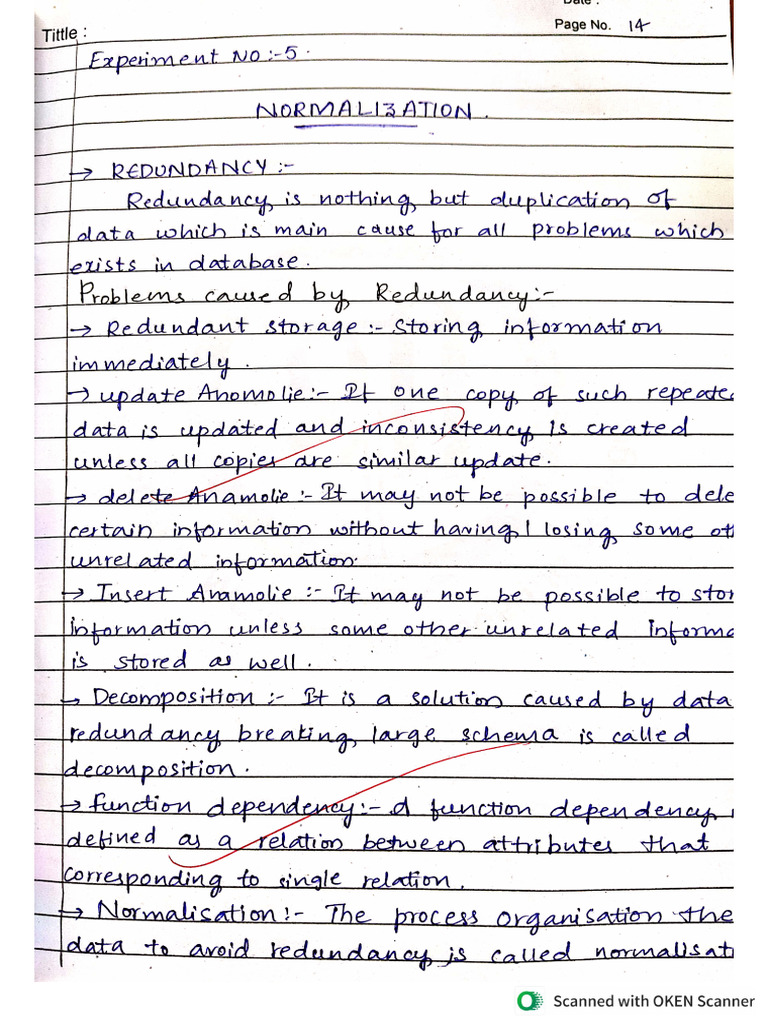 Date :
Tittle :
Page No. 14
Experiment No :- 5.
NORMALIZATION.
→ REDUNDANCY :-
Redundancy is nothing but duplication of
data which is main cause for all problems which
exists in database.
Problems caused by Redundancy:-
→ Redundant storage :- storing information
immediately.
→ update Anomolie:- If one copy of such repeate
data is updated and inconsistency Is created
unless all copies are similar update.
→ delete Anamolie :- It may not be possible to dele
certain information without having / losing some ot
unrelated information.
→ Insert Anamolie :- It may not be possible to stor
information unless some other unrelated Informa
is stored as well.
→ Decomposition :- It is a solution caused by data
redundancy breaking large schema is called
decomposition.
→ function dependency:- A function dependency
defined as a relation between attributes that
corresponding to single relation.
→ Normalisation :- The process organisation the
data to avoid redundancy is called normalisat
Scanned with OKEN Scanner